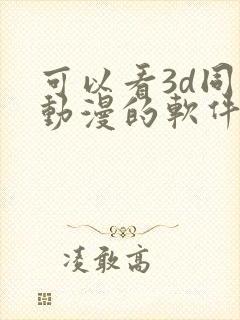 可以看3d同
動漫的軟件
凌敢高